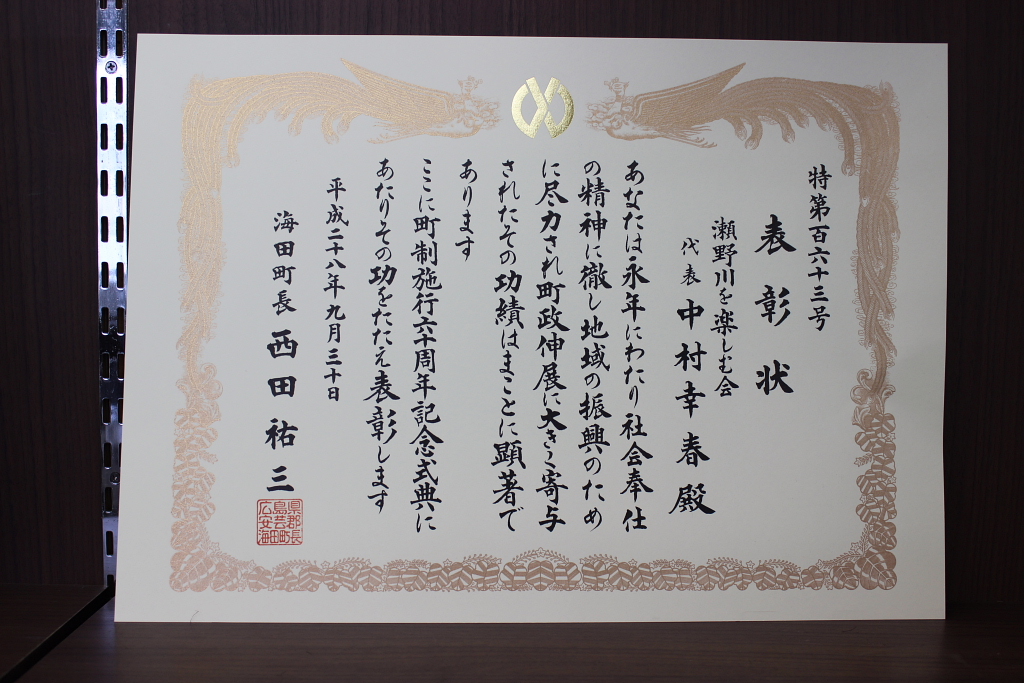 特第百六十三号
表彰状
瀬野川を楽しむ会
代表 中村幸春殿
あなたは永年にわたり社会奉仕
の精神に徹し地域の振興のため
に尽力され町政伸展に大きく寄与
されたその功績はまことに顕著で
あります
ここに町制施行六十周年記念式典に
あたりその功をたたえ表彰します
平成二十八年九月三十日
海田町長 西田祐三
県郡長
島芸町
広安海田